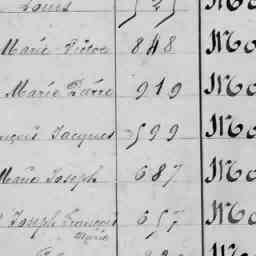 Louis 525 Mo
Marie Victor 848 Mo
Marie Pierre 919 Mo
nçois Jacques 599 Mo
Marie Joseph 687 Mo
Joseph François 657 Mo
Marie